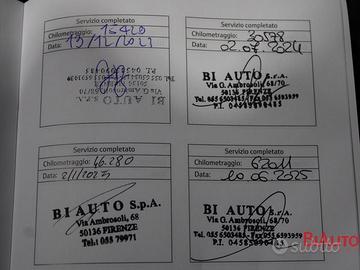 Servizio completato
Chilometraggio: 15420
Data: 13/12/2021
BI AUTO S.p.A.
Via G. Ambrosoli, 68/70
50136 FIRENZE
Servizio completato
Chilometraggio: 30578
Data: 02.07.2024
BI AUTO S.r.A.
Via G. Ambrosoli, 68/70
50136 FIRENZE
Tel. 055 6503485 - Fax 055 6593959
Servizio completato
Chilometraggio: 46.280
Data: 2/1/2025
BI AUTO S.p.A.
Via Ambrosoli, 68
50136 FIRENZE
Tel.: 055 79971
Servizio completato
Chilometraggio: 62011
Data: 10.06.2025
BI AUTO S.r.A.
Via G. Ambrosoli, 68/70
50136 FIRENZE
Tel. 055 6503485 - Fax 055 6593959
BiAuto
subito